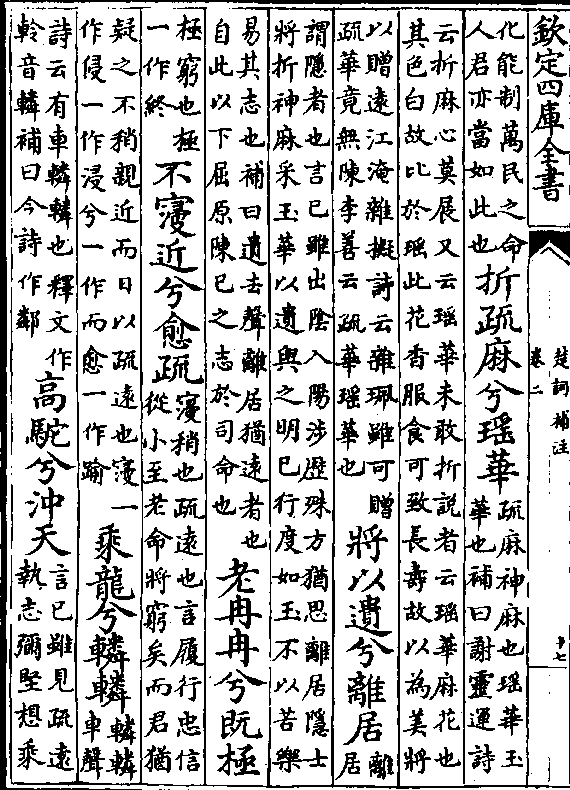 欽定四庫全書
楚詞補注
卷二
十七
化能制萬民之命
人君亦當如此也
折疏麻兮瑶華
疏麻神麻也瑶華玉
華也補曰謝靈運詩
云折麻心莫展又云瑶華未敢折説者云瑶華麻花也
其色白故比於瑶此花香服食可致長壽故以為美將
以贈遠江淹雜擬詩云雜珮雖可贈
疏華竟無陳李善云疏華瑶華也
將以遺兮離居
離
居
謂隱者也言已雖出陰入陽涉歴殊方猶思離居隱士
將折神麻采玉華以遺與之明已行度如玉不以苦樂
易其志也補曰遺去聲離居猶遠者也
自此以下屈原陳已之志於司命也
老冉冉兮既極
極窮也極
一作終
不寖近兮愈疏
寖稍也疏遠也言履行忠信
從小至老命將窮矣而君猶
疑之不稍親近而日以疏遠也寖一
作侵一作浸兮一作而愈一作踰
乘龍兮轔轔
轔轔
車聲
詩云有車轔轔也釋文作
軨音轔補曰今詩作鄰
高駝兮沖天
言已雖見疏遠
執志彌堅想乘